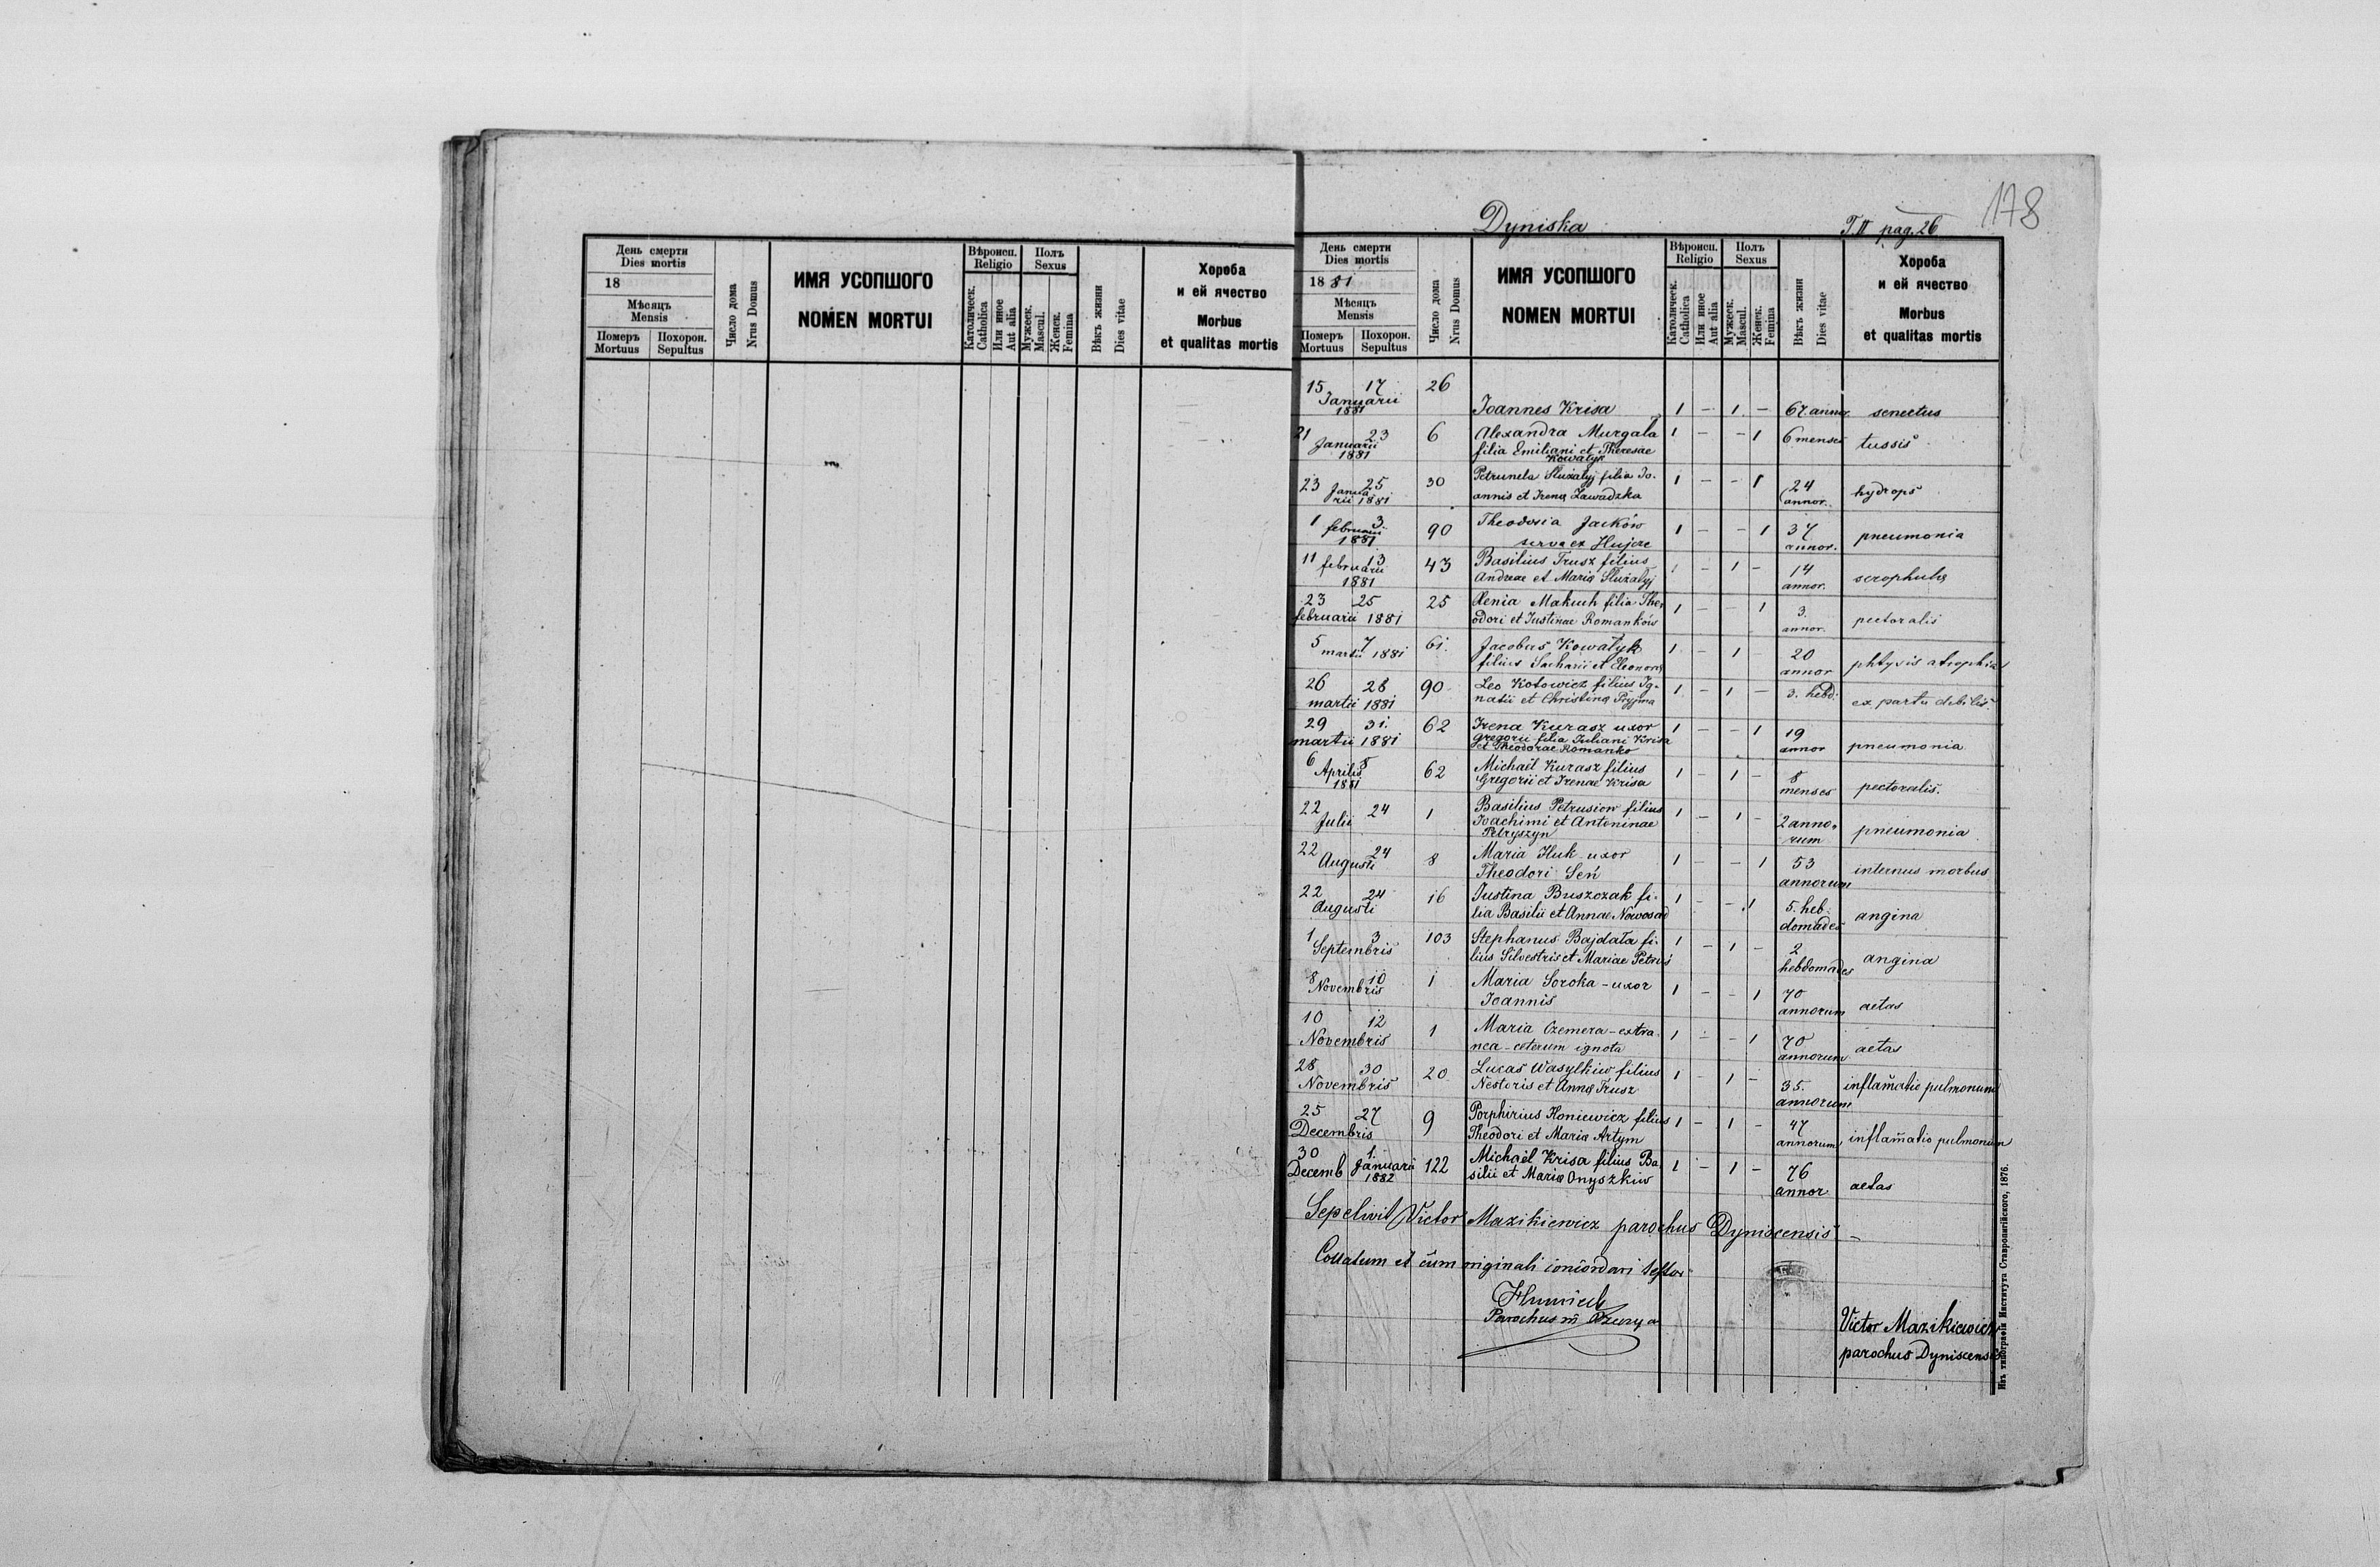 День смерти
Dies mortis
18
Мѣсяцъ
Mensis
Померъ
Mortuus
Похорон.
Sepultus
Число дома
Nrus Domus
ИМЯ УСОПШОГО
NOMEN MORTUI
Вѣроисп.
Religio
Католическ.
Catholica
Или иное
Aut alia
Полъ
Sexus
Мужеск.
Mascul.
Женск.
Femina
Вѣкъ жизни
Dies vitae
Хороба
и ей ячество
Morbus
et qualitas mortis
178
Dyniska
T.II pag. 26
День смерти
Dies mortis
1881
Мѣсяцъ
Mensis
Померъ
Mortuus
Похорон.
Sepultus
Число дома
Nrus Domus
ИМЯ УСОПШОГО
NOMEN MORTUI
Вѣроисп.
Religio
Католическ.
Catholica
Или иное
Aut alia
Полъ
Sexus
Мужеск.
Mascul.
Женск.
Femina
Вѣкъ жизни
Dies vitae
Хороба
и ей ячество
Morbus
et qualitas mortis
15 17 26
Januarii
1881 Joannes Krisa 1 – 1 – 67 annor. senectus
21 23 6 Alexandra Murgała 1 – – 1 6 menses tussis
Januarii filia Emiliani et Theresae
1881 Kowalyk
23 25 30 Petrunela Służałyj filia Jo- 1 – – 1 24 hydrops
Janua- annis et Irenę Zawadzka annor.
rii 1881
1 3 90 Theodosia Jacków 1 – – 1 37 pneumonia
februarii serva ex Hujcze annor.
1881
11 13 43 Basilius Trusz filius 1 – 1 – 14 scrophulę
februarii Andreae et Marię Służałyj annor.
1881
23 25 25 Xenia Makuch filia The- 1 – – 1 3. pectoralis
februarii 1881 odori et Justinae Romanków annor.
5 7 61. Jacobus Kowałyk 1 – 1 – 20 phtysis atrophia
martii 1881 filius Sachariï et Eleonorę annor
26 28 90 Leo Kotowicz filius Ig- 1 – 1 – 3. hebd. ex partu debilis.
martii 1881 natii et Christinę Pryjma
29 31. 62 Irena Kurasz uxor 1 – – 1 19 pneumonia
martii 1881 Gregorii filia Juliani Krisa annor
et Theodorae Romanko
6 8 62 Michaël Kurasz filius 1 – 1 – 8 pectoralis.
Aprilis Gregorii et Irenae Krisa menses
1881
22 24 1 Basilius Petrusiow filius 1 – 1 – 2 anno- pneumonia
Julii Joachimi et Antoninae rum
Petryszyn
22 24 8 Maria Huk uxor 1 – – 1 53 internus morbus
Augusti Theodori Seń annorum
22 24 16 Justina Buszczak fi- 1 – – 1 5. heb- angina
Augusti lia Basilii et Annae Nowosad domades
1 3 103 Stephanus Bajdała fi- 1 – 1 – 2 angina
Septembris lius Silvestris et Mariae Petruś hebdomades
8 10 1 Maria Soroka – uxor 1 – – 1 70 aetas
Novembris Joannis annorum
10 12 1 Maria Czemera – extra- 1 – – 1 70 aetas
Novembris nea – ceterum ignota annorum
28 30 20 Lucas Wasylkiw filius 1 – 1 – 35. inflam̃atio pulmonum
Novembris Nestoris et Annę Trusz annorum
25 27 9 Porphirius Koniewicz filius 1 – 1 – 47 inflam̃atio pulmonum
Decembris Theodori et Marię Artym annorum
30 1. 122 Michaël Krisa filius Ba- 1 – 1 – 76 aetas
Decemb Januarii silii et Marię Onyszkiw annor
1882
Sepelivit Victor Mazikiewicz parochus Dyniscensis –
Collatum et cum originali concordari testor
Parochus
Victor Mazikiewicz
parochus Dyniscensis
Изъ типографіи Института Ставропигійского, 1876.